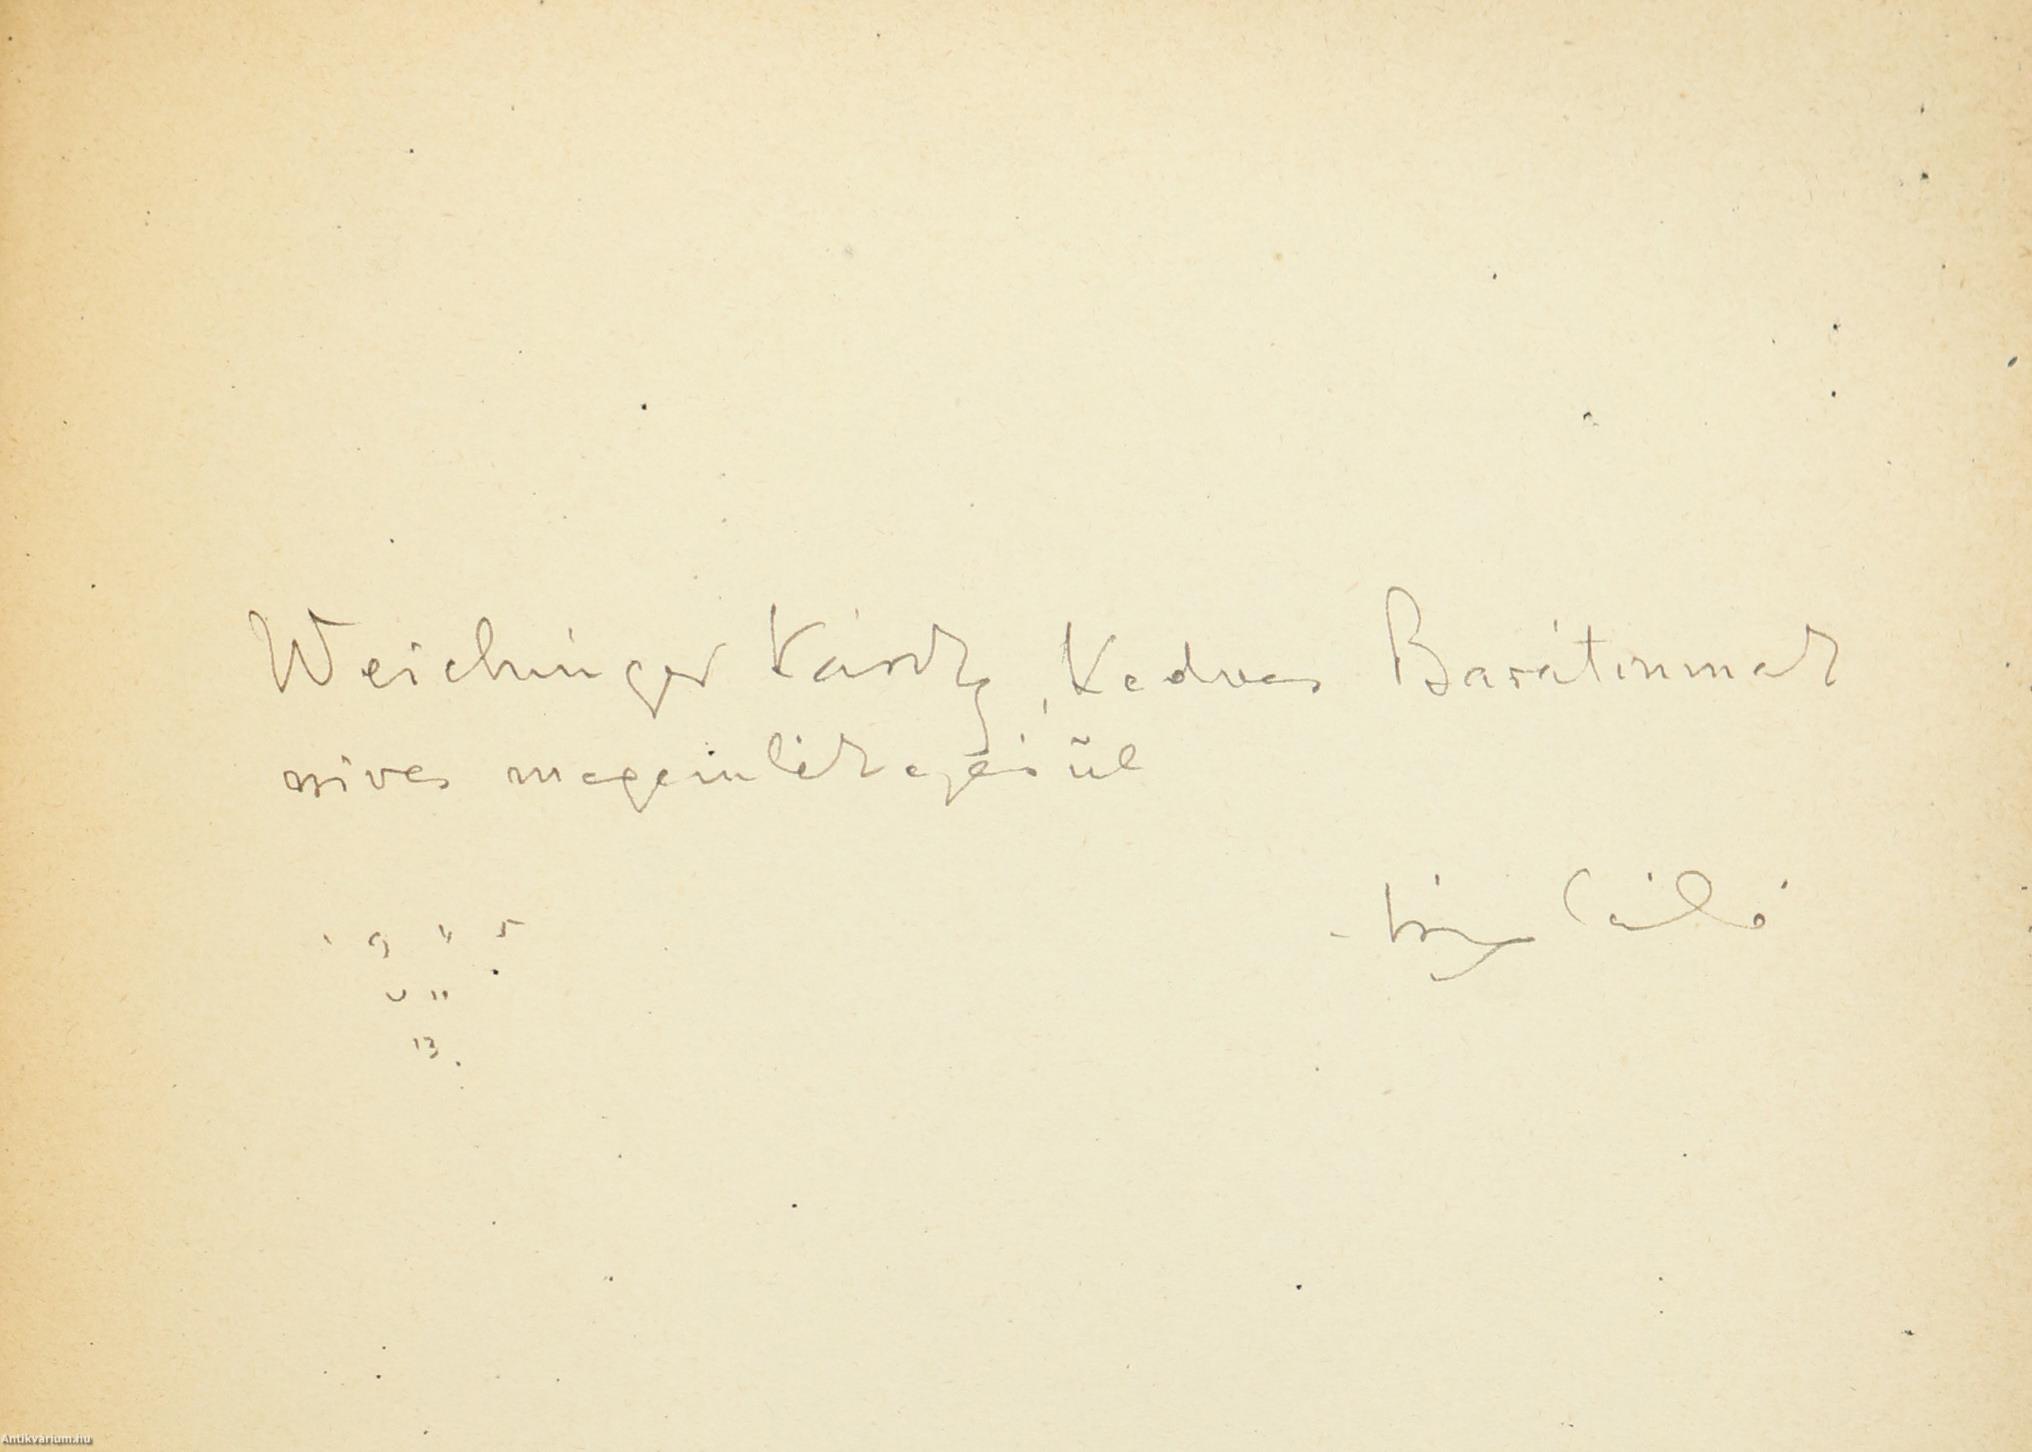 Weichinger Károly, Kedves Barátomnak
szives megemlékezésül
László
1945
VII
13.
Antikvárium.hu